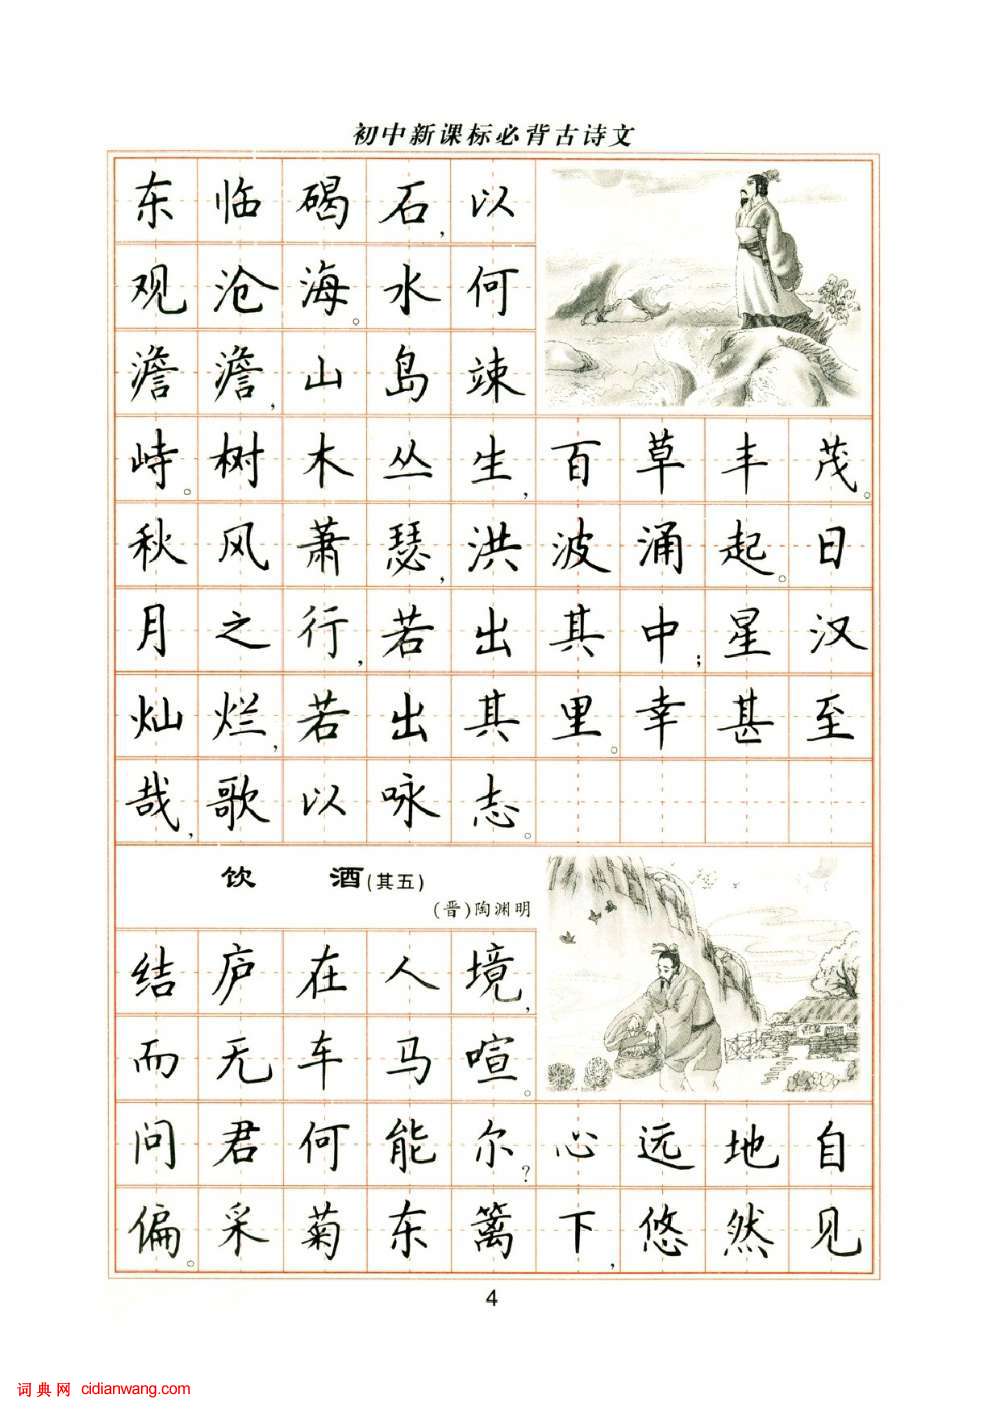 初中新课标必背古诗文
东临碣石,以
观沧海。水何
澹澹,山岛竦
峙。树木丛生,百草丰茂。
秋风萧瑟,洪波涌起。日
月之行,若出其中;星汉
灿烂,若出其里。幸甚至
哉,歌以咏志。
饮 酒(其五)
(晋)陶渊明
结庐在人境,
而无车马喧。
问君何能尔?心远地自
偏。采菊东篱下,悠然见
4
词典网 cidianwang.com